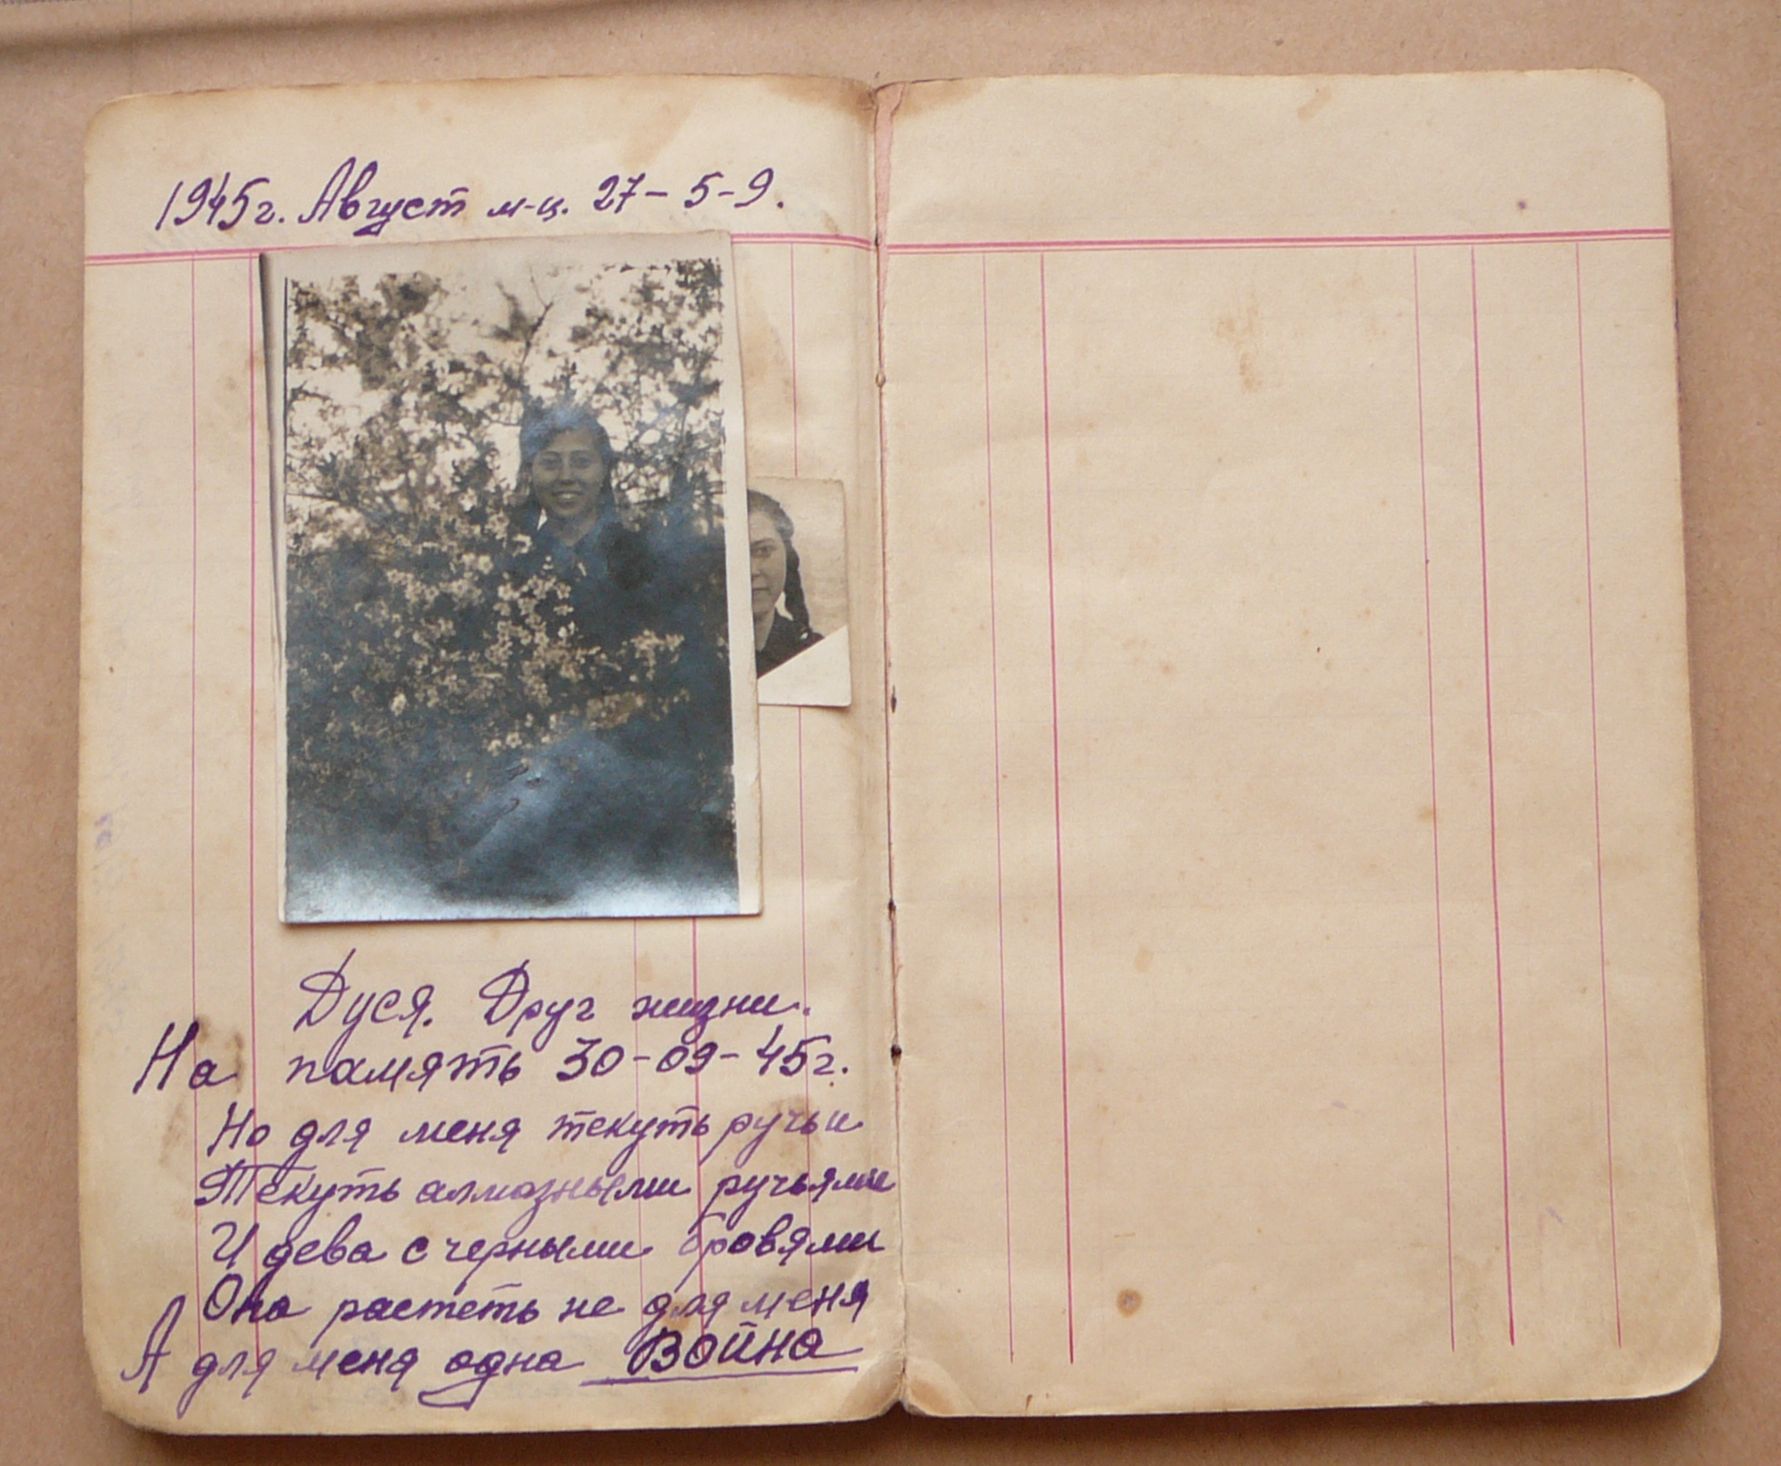 1945г. Август м-ц. 27-5-9.
Дуся. Друг жизни.
На память 30-09-45г.
Но для меня текуть ручьи
Текуть алмазными ручьями
И дева с черными бровями
Она растеть не для меня
А для меня одна война